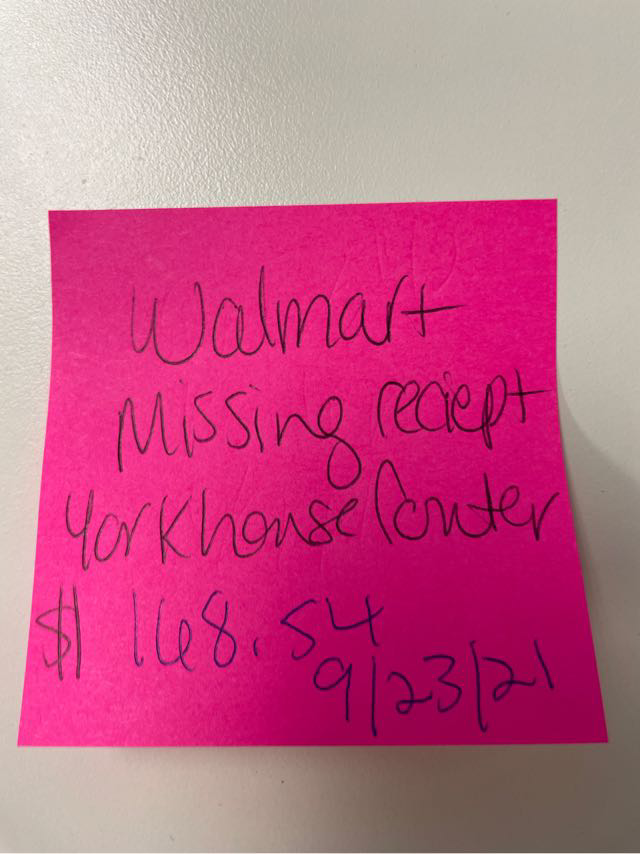 Walmart
Missing reciept
Yorkhouse Conter
$ 168.54
9/23/21